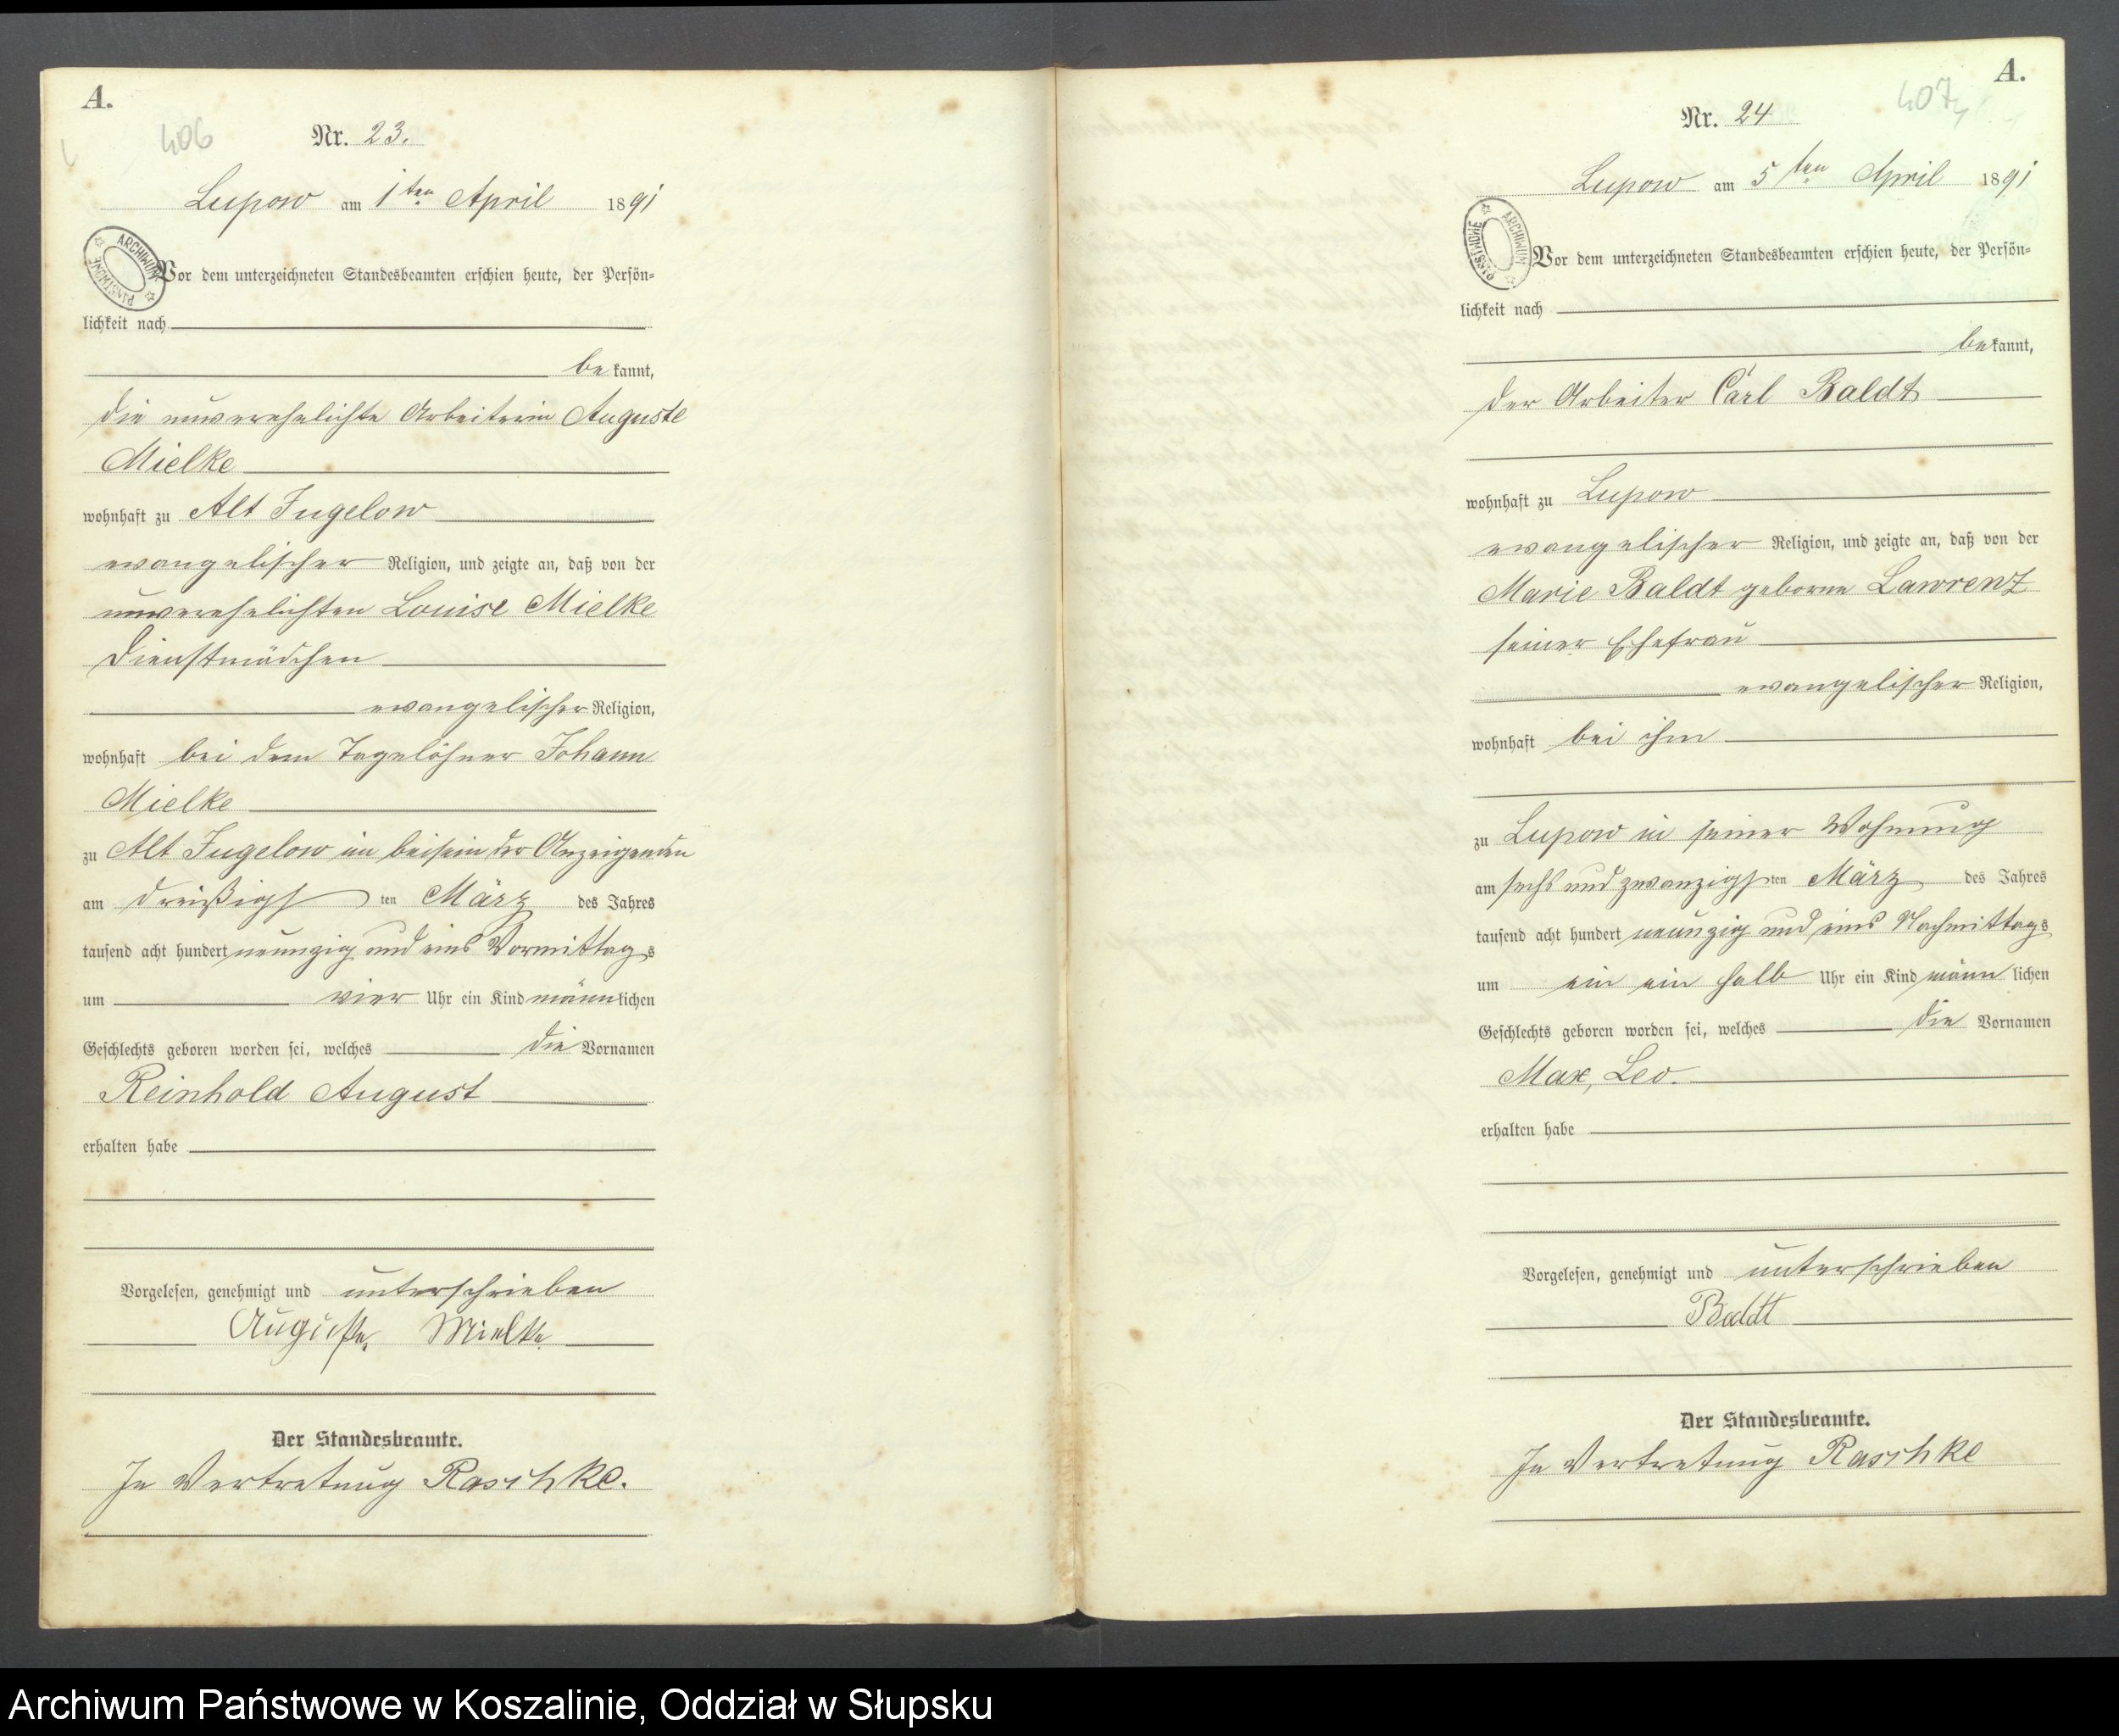 A.
406
Nr. 23.
Lupow am 1ten April 1891
ARCHIWUM PAŃSTWOWE
Vor dem unterzeichneten Standesbeamten erschien heute, der Persön-
lichkeit nach
bekannt,
die unverehelichte Arbeiterin Auguste
Mielke
wohnhaft zu Alt Jugelow
evangelischer Religion, und zeigte an, daß von der
unverehelichten Louise Mielke
Dienstmädchen
evangelischer Religion,
wohnhaft bei dem Tagelöhner Johann
Mielke
zu Alt Jugelow im beisein der Anzeigenden
am dreißigsten März des Jahres
tausend acht hundert neunzig und eins Vormittags
um vier Uhr ein Kind männlichen
Geschlechts geboren worden sei, welches die Vornamen
Reinhold August
erhalten habe
Vorgelesen, genehmigt und unterschrieben
Auguste Mielke
Der Standesbeamte.
In Vertretung Raschke.
A.
407
Nr. 24
Lupow am 5ten April 1891
ARCHIWUM PAŃSTWOWE
Vor dem unterzeichneten Standesbeamten erschien heute, der Persön-
lichkeit nach
bekannt,
der Arbeiter Carl Baldt
wohnhaft zu Lupow
evangelischer Religion, und zeigte an, daß von der
Marie Baldt geborne Lawrenz
seiner Ehefrau
evangelischer Religion,
wohnhaft bei ihm
zu Lupow in seiner Wohnung
am sechs und zwanzigsten März des Jahres
tausend acht hundert neunzig und eins Nachmittags
um ein ein halb Uhr ein Kind männlichen
Geschlechts geboren worden sei, welches die Vornamen
Max, Leo.
erhalten habe
Vorgelesen, genehmigt und unterschrieben
Baldt
Der Standesbeamte.
In Vertretung Raschke
Archiwum Państwowe w Koszalinie, Oddział w Słupsku